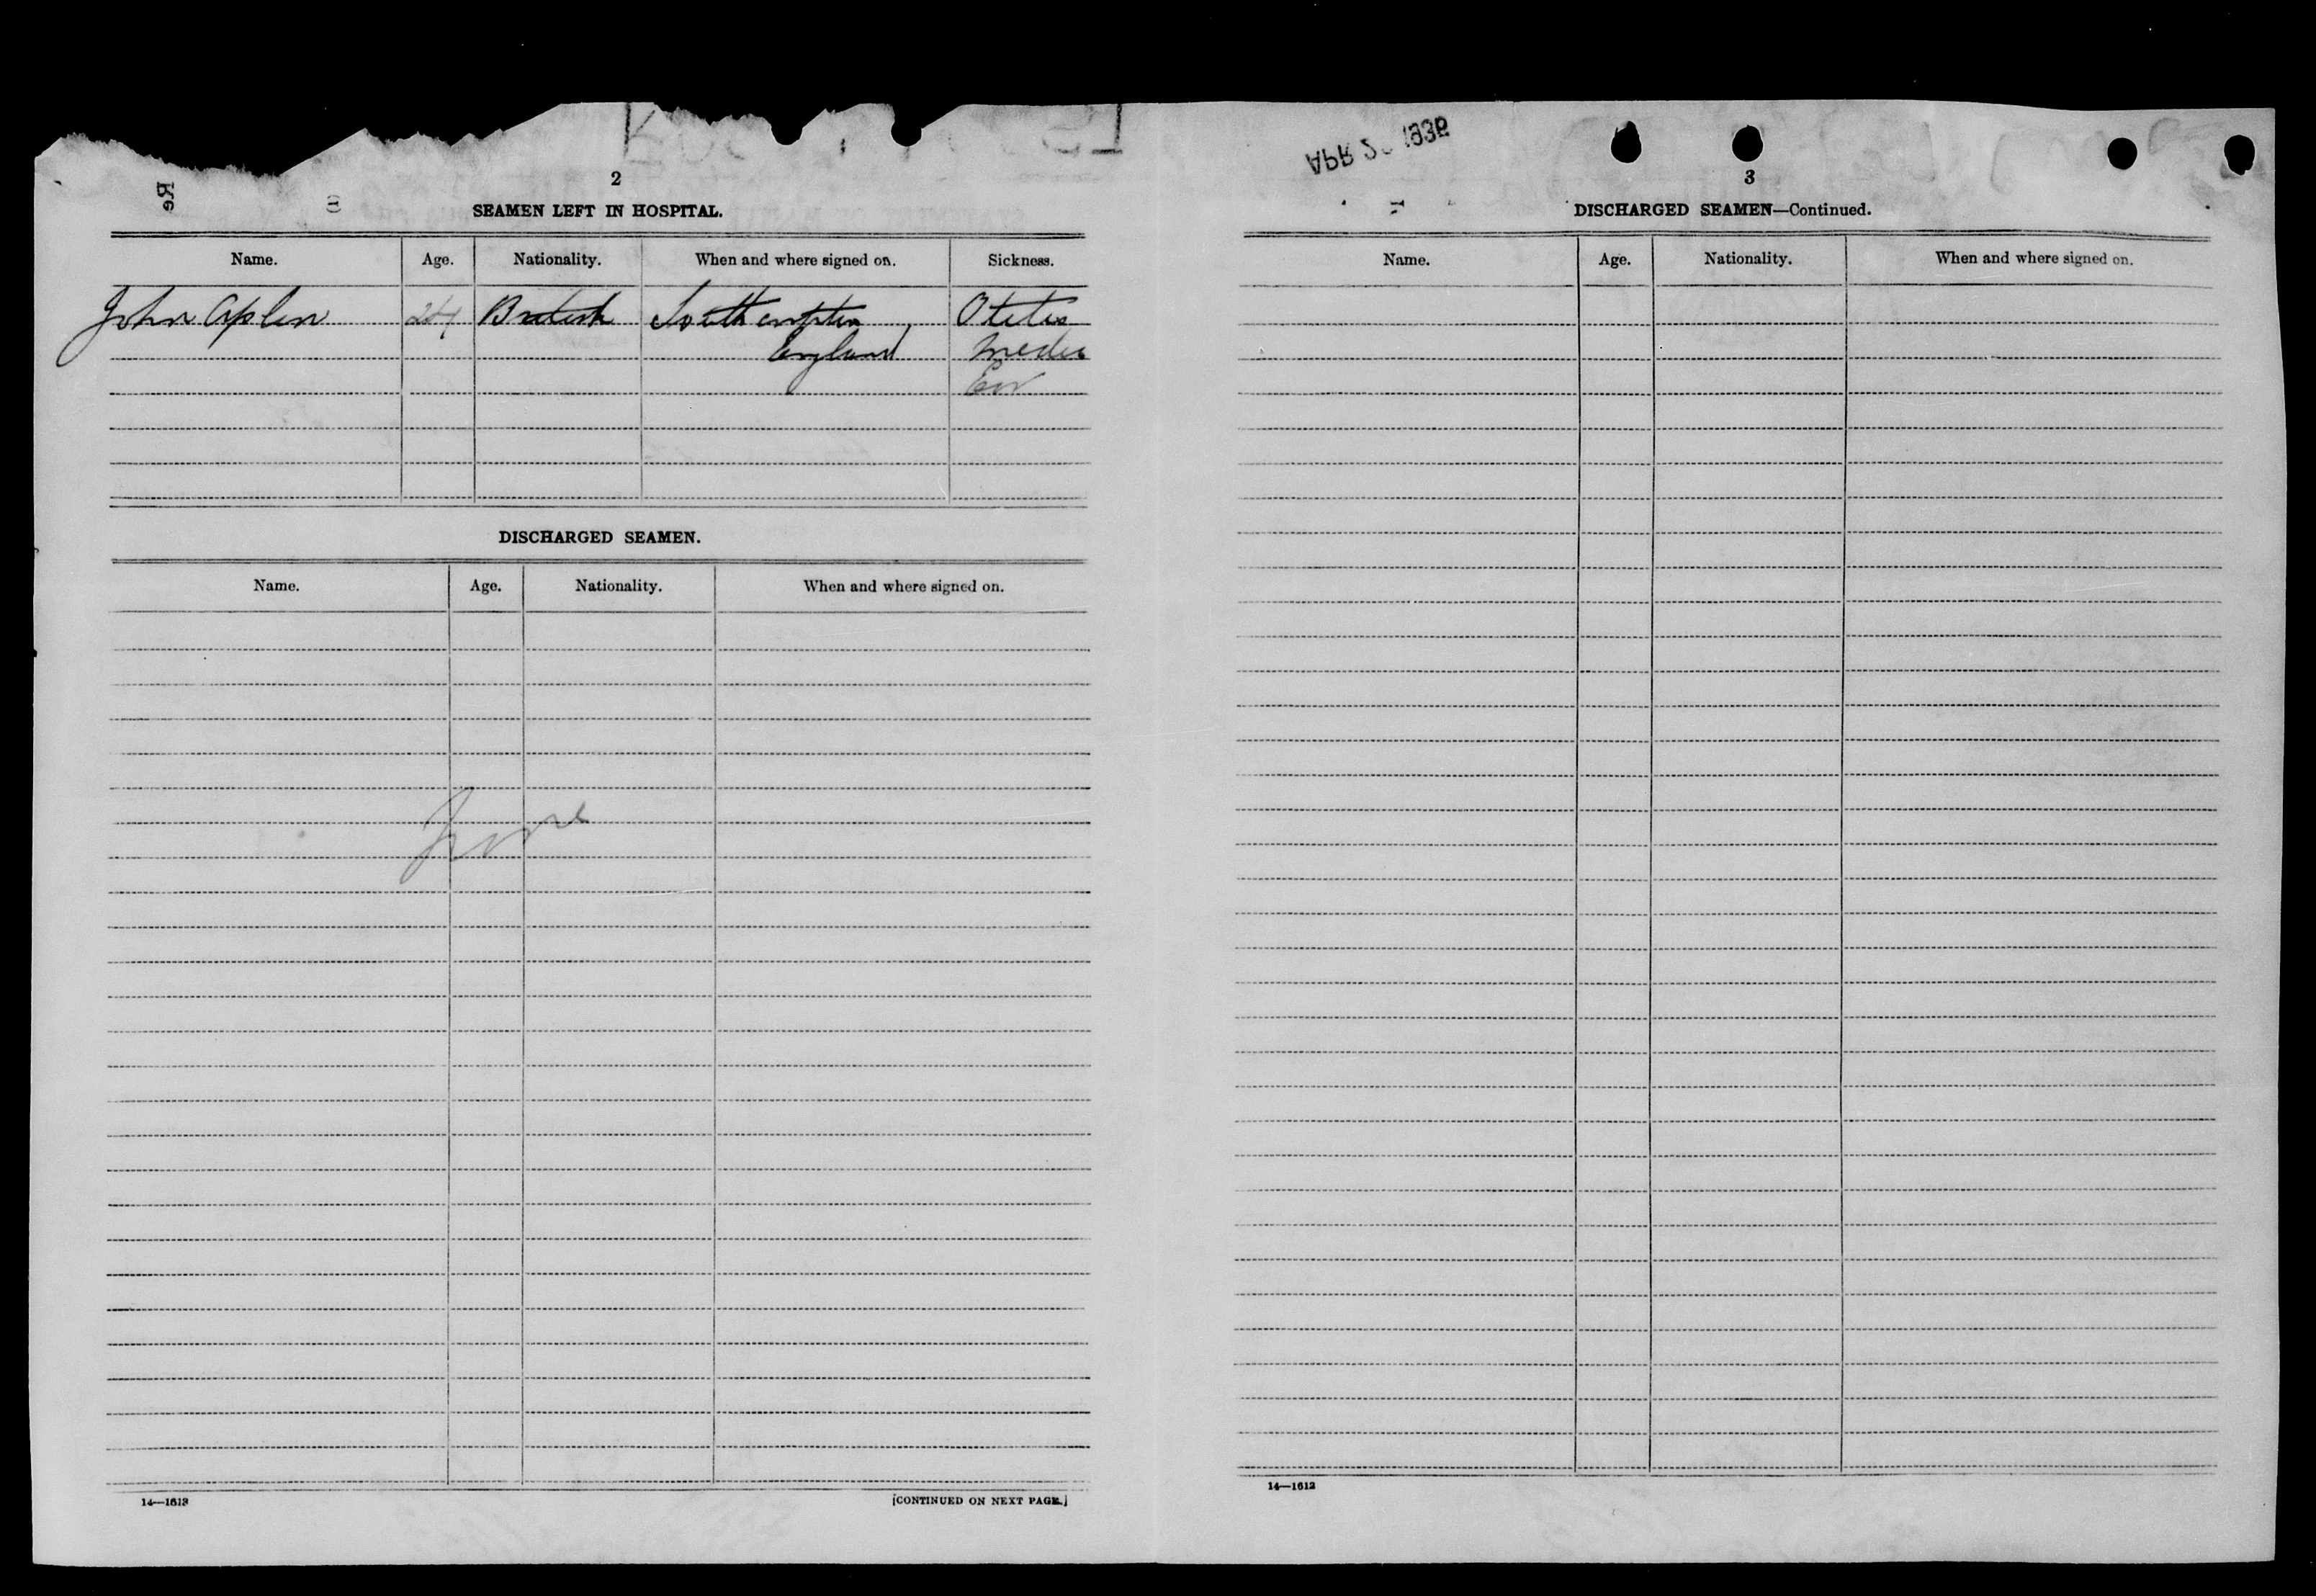 2
SEAMEN LEFT IN HOSPITAL.
Name. Age. Nationality. When and where signed on. Sickness.
John Aplin 24 British Southampton, Otitis
England Media
Ear
DISCHARGED SEAMEN.
Name. Age. Nationality. When and where signed on.
None
14—1613 [CONTINUED ON NEXT PAGE.]
APR 2
3
DISCHARGED SEAMEN—Continued.
Name. Age. Nationality. When and where signed on.
14—1613